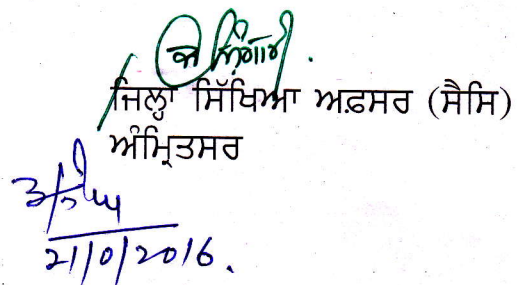 ਜਿਲ੍ਹਾ ਸਿੱਖਿਆ ਅਫ਼ਸਰ (ਸੈਸਿ)
ਅੰਮ੍ਰਿਤਸਰ
21/0/2016.